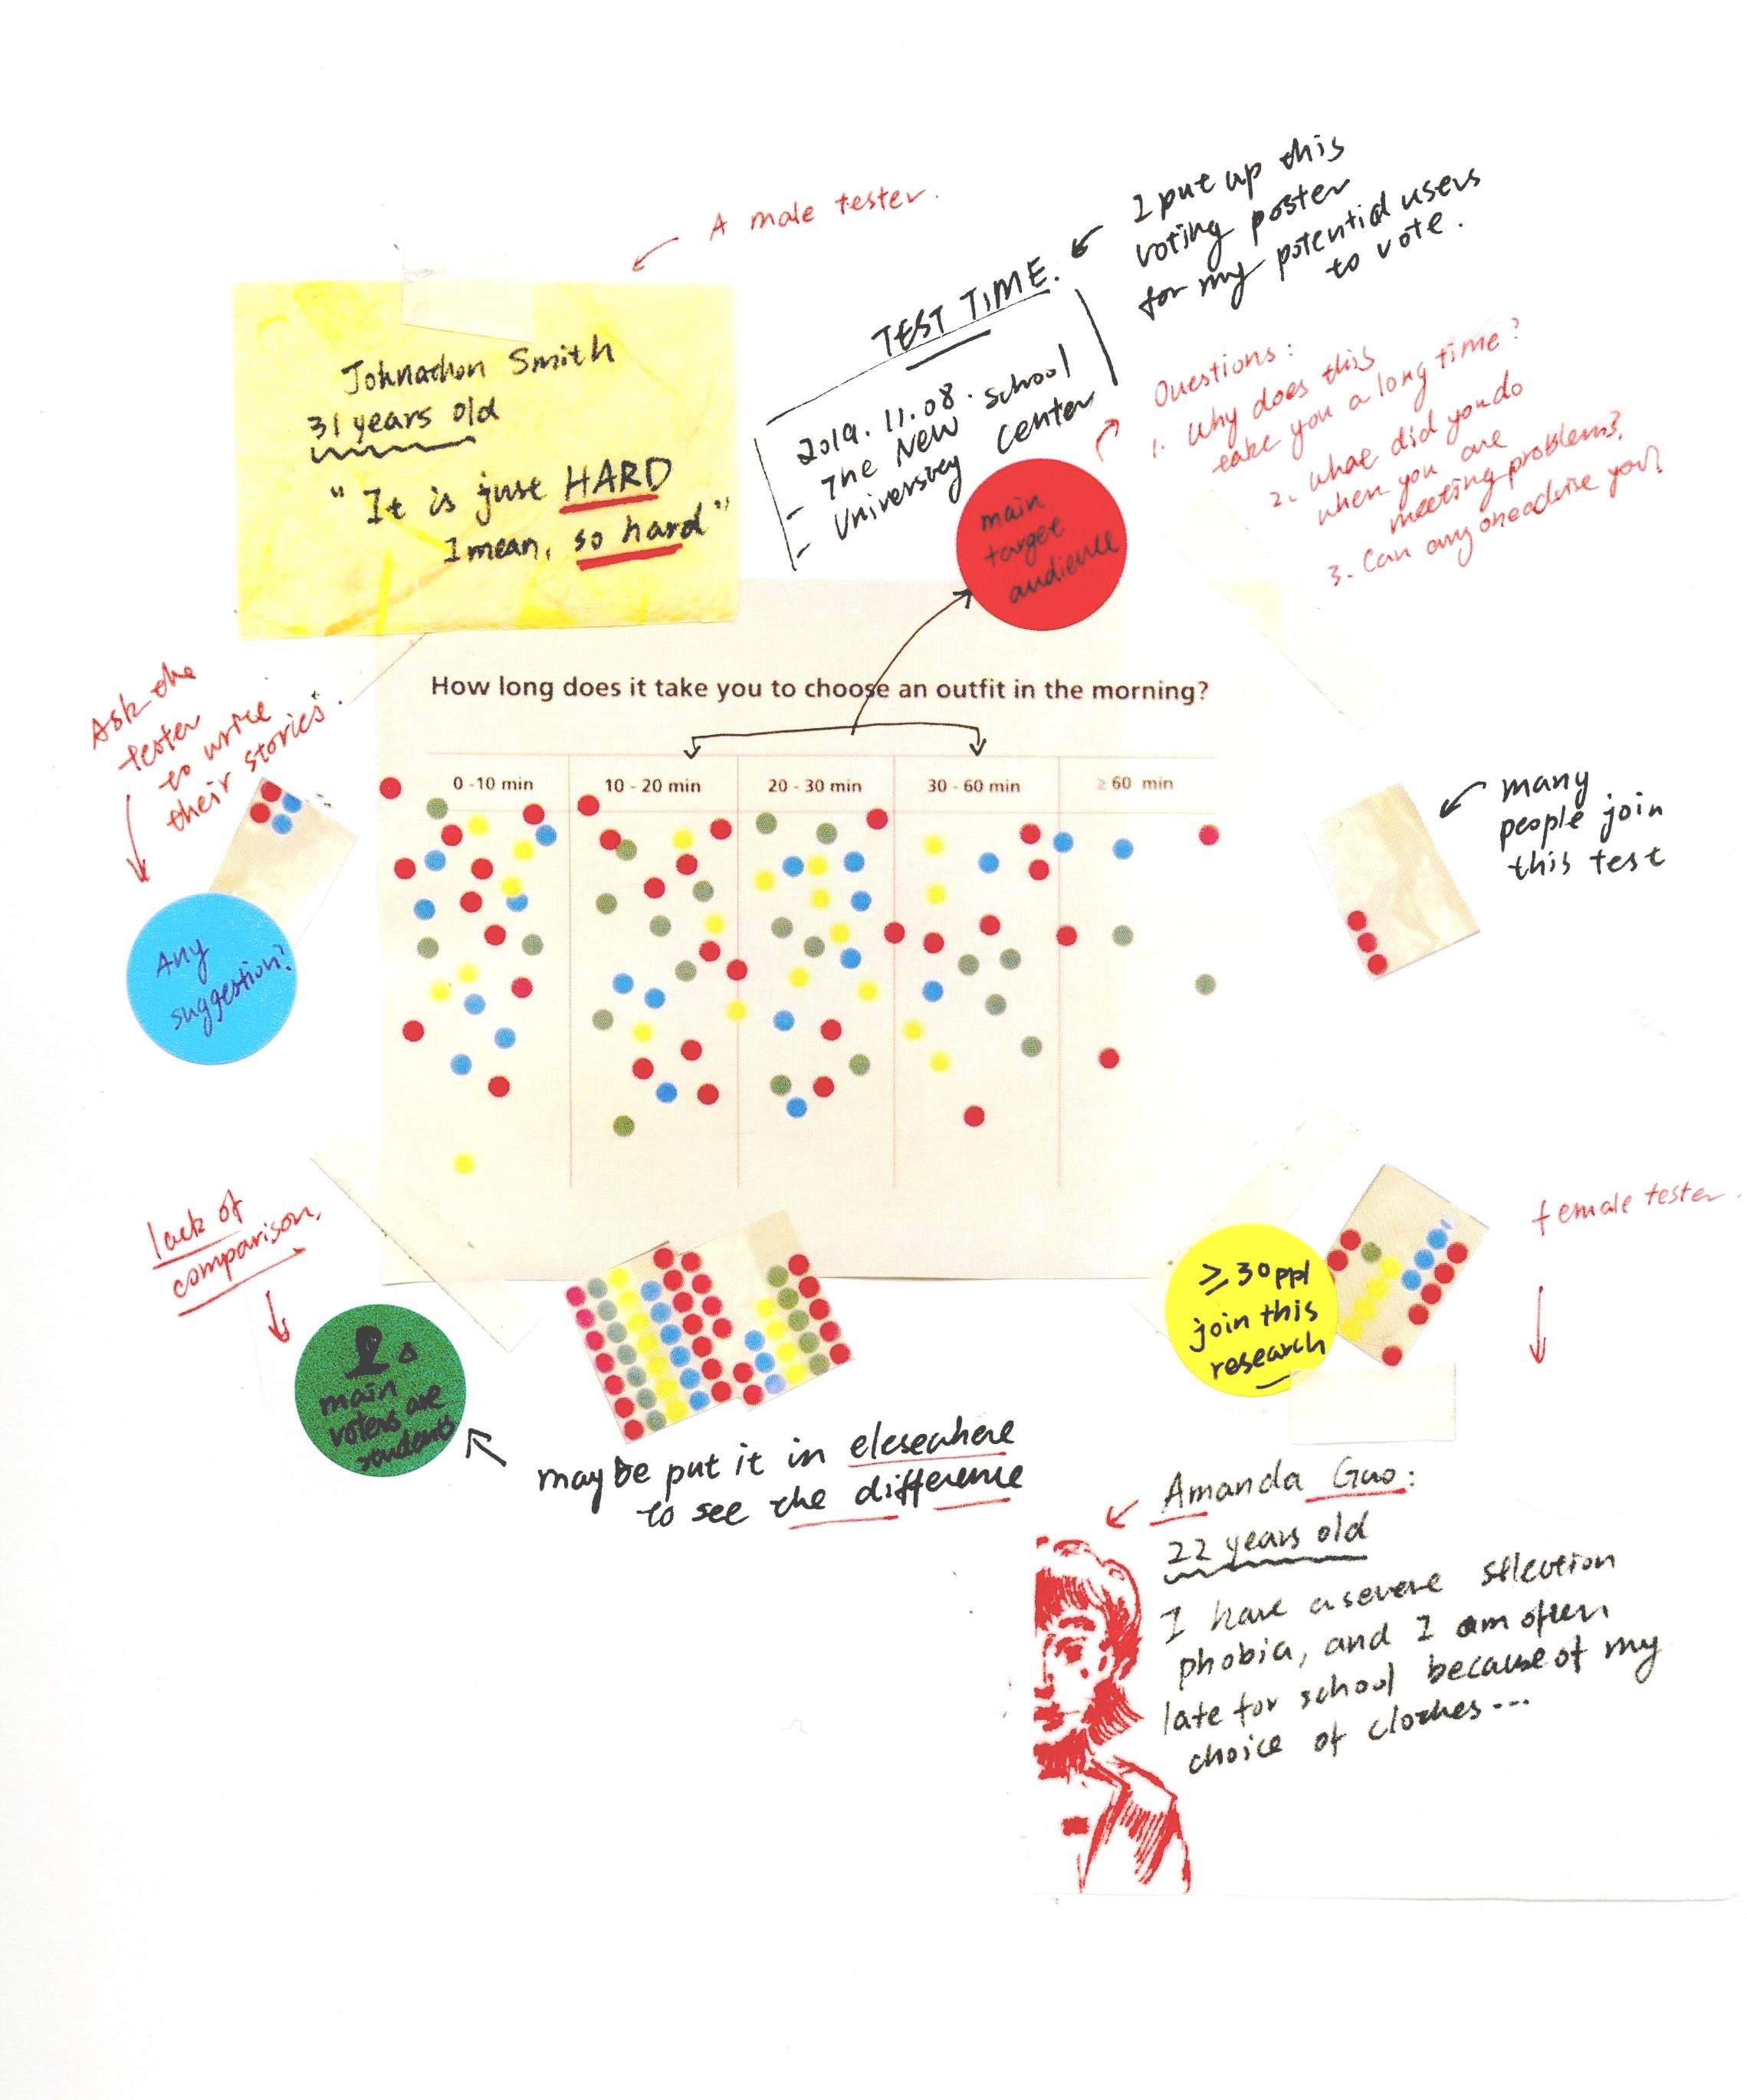 A male tester.
I put up this
voting poster
for my potential users
to vote.
TEST TIME.
2019.11.08. school
The New
University Center
Johnathon Smith
31 years old
"It is just HARD
I mean, so hard"
Questions:
1. Why does this
take you a long time?
2. What did you do
when you are
meeting problems?
3. Can anyone advise you?
main
target
audience
How long does it take you to choose an outfit in the morning?
0-10 min
10 - 20 min
20 - 30 min
30 - 60 min
≥ 60 min
Ask the
tester
to write
their stories.
Any
suggestion?
many
people join
this test
lack of
comparison,
main
voters are
students
maybe put it in elesewhere
to see the difference
≥ 30 ppl
join this
research
female tester.
Amanda Guo:
22 years old
I have a severe selection
phobia, and I am often
late for school because of my
choice of clothes...